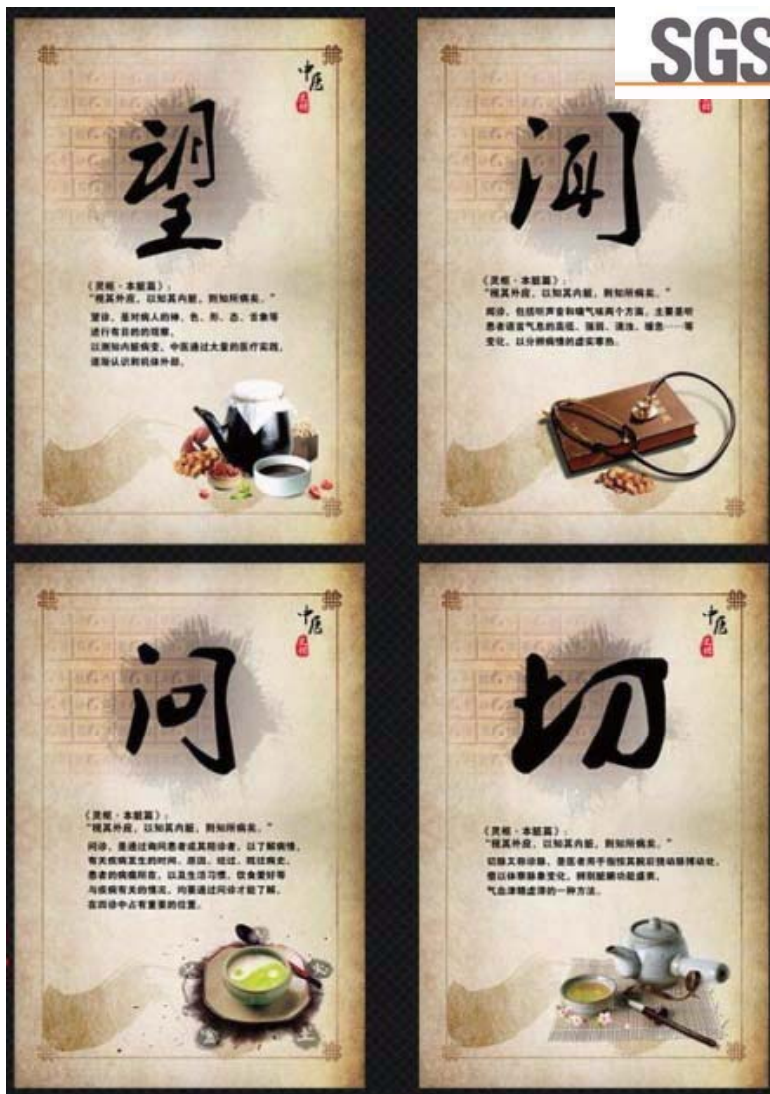 中医
望
《灵枢·本脏篇》:
“视其外应,以知其内脏,则知所病矣。”
望诊,是对病人的神、色、形、态、舌象等
进行有目的的观察,
以测知内脏病变,中医通过大量的医疗实践,
逐渐认识到机体外部,
SGS
闻
《灵枢·本脏篇》:
“视其外应,以知其内脏,则知所病矣。”
闻诊,包括听声音和嗅气味两个方面,主要是听
患者语言气息的高低、强弱、清浊、缓急……等
变化,以分辨病情的虚实寒热。
中医
问
《灵枢·本脏篇》:
“视其外应,以知其内脏,则知所病矣。”
问诊,是通过询问患者或其陪诊者,以了解病情,
有关疾病发生的时间、原因、经过、既往病史、
患者的病痛所在,以及生活习惯、饮食爱好等
与疾病有关的情况,均要通过问诊才能了解,
在四诊中占有重要的位置。
中医
切
《灵枢·本脏篇》:
“视其外应,以知其内脏,则知所病矣。”
切脉又称诊脉,是医者用手指按其腕后桡动脉搏动处,
借以体察脉象变化,辨别脏腑功能盛衰,
气血津精虚滞的一种方法。